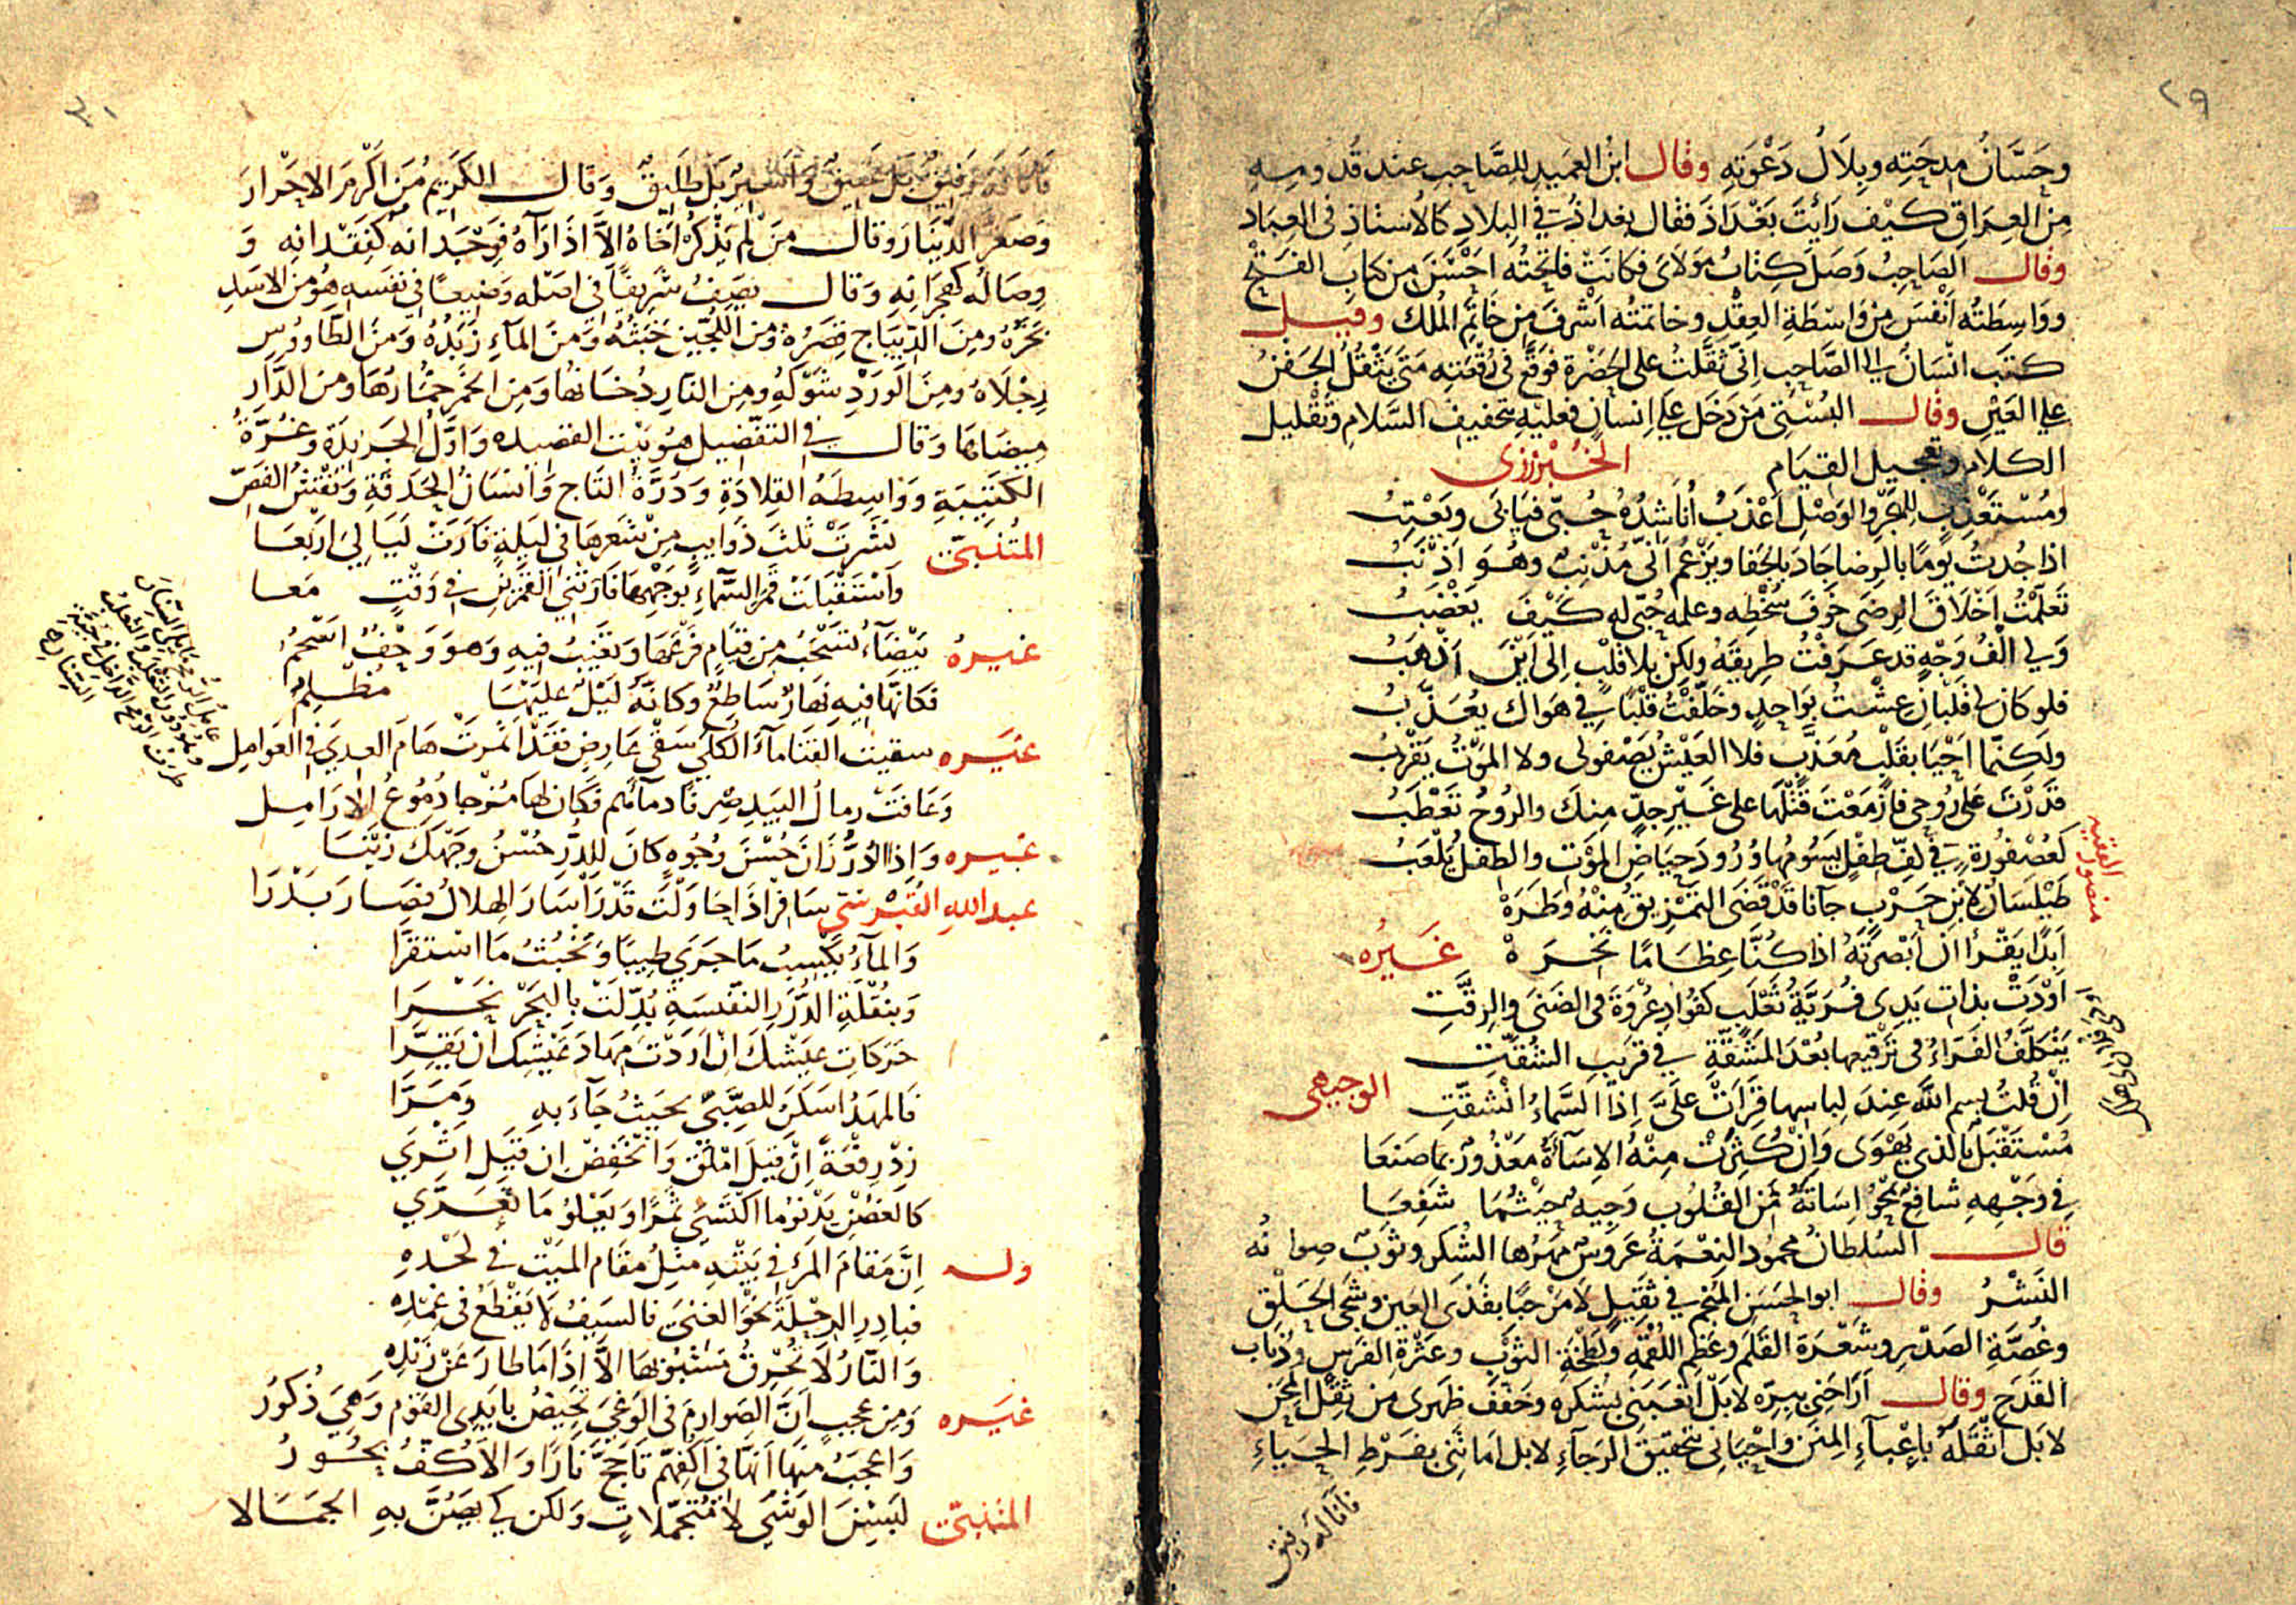 ٢٩
وحَسَّانُ مِدحَتِه وبِلَالُ دَعْوَتِهِ وقال ابْنُ العَمِيد لِلصَّاحِبِ عند قُدُومِهِ
مِن العِرَاقِ كَيْفَ رَايْتَ بَغْدَاذَ فقال بغداذُ في البِلادِ كالأستاذِ في العِبَاد
وقال الصَاحِبُ وَصَلَ كِتابُ مَوْلايَ فكانَتْ فاتِحَتُه احْسَنَ مِن كتابِ الفَتْحِ
ووَاسِطَتُه انْفَسَ مِنْ وَاسِطَةِ العِقْدِ وخاتمتُه اَشْرَفَ مِن خَاتَمِ المُلك وقيل
كتَبَ انْسَانٌ الى الصَّاحِبِ اِنّى ثَقَّلتُ على الحَضْرَةِ فوَقَّعَ في رُقْعَتِه مَتَى يَثْقُلُ الجَفنُ
على العَيْنِ وقال البُسْتِى مَن دَخَل على اِنسانٍ فعليْهِ بتخفيفِ السَّلامِ وتَقْليل
الكلامِ وتعجيل القيَام الخُبْزرزى
ومُسْتَعْذِبٍ لِلهَجْرِ والوَصْلُ اَعْذَبُ اُنَاشِدُهُ حُبّى فيَابَى ويَعْتِبُ
اذا جُدتُ يومًا بالرِضا جَادَ بالجَفا ويَزْعُمُ اَنّى مُذْنِبٌ وهُوَ اَذْنَبُ
تَعَلَّمْتُ اَخْلَاقَ الرِضَى خَوفَ سُخْطِه وعلمه حُبّى له كَيْفَ يَغْضَبُ
وَلى اَلْفُ وَجْهٍ قد عَرَفْتُ طِريقَهُ ولكِنْ بلا قَلْبٍ اِلى اَيْنَ اَذْهَبُ
فلو كان لى قَلبَانِ عِشْتُ بوَاحِدٍ وخَلّفْتُ قَلْبًا في هَوَاكَ يُعَذَّبُ
ولكِنّما اَحْيَا بقَلْبٍ مُعَذَّبٍ فلا العَيْشُ يَصْفو لى ولا المَوْتُ يَقْرُبُ
قَدَرْتَ عَلى رُوحى فازْمَعْتَ قَتْلَهَا على غَيْرِ جِدٍّ مِنكَ والرُوحُ تَعْطَبُ
كعُصْفُورَةٍ في كَفّ طِفْلٍ يَسُومُها وُرُودَ حِيَاضِ المَوْتِ والطفلُ يَلْعَبُ
منصور الفقيه
طَيْلَسَانٌ لابْنِ حَرْبٍ جآنا قَدْ قَضَى التَمْزِيقُ مِنْهُ وَطَرَهْ
اَبَدًا يَقْرَأُ اِنْ اَبْصَرْتَهُ اذا كُنَّا عِظَامًا نَخِرَهْ غَيرُه
اَوْدَتْ بذاتِ يَدِى فُرَيَّةُ ثَعْلَبٍ كفُؤادِ عُرْوَةَ في الضنَى والرِقَّةِ
يَتَكَلَّفُ الفَرَاءُ في تَرْقيعِها بُعْدَ المَشَقَّةِ في قَرِيبِ الشُقّةِ
اِنْ قُلتُ بسمِ اللّه عِندَ لِباسِها قَرَاَتْ عَلىَّ اِذَا السَّماءُ انْشَقّتِ الوجيهى
مُسْتَقْبَلٌ بالذى يَهْوَى وَاِنْ كَثُرَتْ مِنْهُ الاِسَآءَةُ مَعْذُورٌ بما صَنَعَا
في وَجْهِهِ شافِعٌ يَمْحُو اِسَاتَهُ مِنَ القُلُوبِ وَجِيهٌ حَيْثُمَا شَفَعَا
قال السُلطانُ محمُود النِعْمَةُ عَرُوسٌ مَهْرُها الشُكر وثَوبٌ صِوانُه
النَشْرُ وقال ابو الحَسَنِ المنجم في ثَقِيلٍ لا مَرْحبًا بقَذَى العَين وشَجَى الحَلْقِ
وغُصَّةِ الصَدْرِ وشَعْرَة القَلَمِ وعَظمِ اللُقْمَةِ ولَطْخَةِ الثوْبِ وعَثْرَةِ الفَرَسِ وذُبَابِ
القَدَحِ وقال اَرَاحَنى بِبِرّه لا بَلْ اَتْعَبَنى بشكره وخَفّفَ ظهرى من ثِقْلِ المِحَن
لا بَل اَثْقَلَهُ بِاِعْبآءِ المِنَنِ واَحْيَانى بتحقيقِ الرجآءِ لا بل اَمَاتَنى بفَرْطِ الحَيَاءِ
فانا له رقيق
٣٠
فَانَا لَهُ رَقِيقٌ بَلْ عَتِيقٌ وَاَسِيرٌ بَلْ طَلِيقٌ وَقَال الكَرِيمُ مَنْ اَكْرَمَ الاحْرَارَ
وَصَغَّرَ الدِّينَارَ وَقَال مَنْ لَم يَذْكُرْ اَخَاهُ اِلَّا اذَا رَآهُ فَوِجْدَانُه كَفِقْدَانِه وَ
وِصَالُه كَهِجْرَانِهِ وَقَال يَصِفُ شَرِيفًا في اصْلِه وَضِيعًا في نَفسِه هُوَ مِنَ الاسَدِ
بَخَرُهُ وَمِنَ الدِّيبَاجِ قِصَرُهُ وَمِنَ اللُّجَيْنِ خَبَثُهُ وَمِنَ المآءِ زَبَدُهُ وَمِنَ الطَّاووُسِ
رِجْلَاهُ وَمِنَ الوَرْدِ شَوْكُهُ وَمِنَ النارِ دُخَانُهَا وَمِنَ الخَمْرِ خُمَارُهَا وَمِنَ الدَّارِ
مِيضَاتُهَا وَقَال في التَّفْضِيل هُوَ بَيْتُ القصيده وَاَوَّلُ الجَرِيدَة وَغُرَّةُ
الكَتِيبَةِ وَوَاسِطَةُ القِلَادَةِ وَدُرَّةُ التاجِ وَاِنسَانُ الحَدَقَةِ وَنَقْشُ الفَصِّ
المُتَنَبّى نَشَرَتْ ثَلثَ ذَوَايِبٍ مِنْ شَعْرِهَا في لَيلَةٍ فَاَرَتْ لَيَالِيَ اَرْبَعَا
وَاسْتَقْبَلَتْ قَمَرَ السَّمَاءِ بوَجْهِهَا فَاَرَتْنِيَ القَمَرَيْنِ في وَقْتٍ مَعَا
غيرهُ بَيْضَآءُ تَسْحَبُ مِن قِيَامٍ فَرْعَهَا وَتَغِيبُ فِيهِ وَهوَ وَحْفٌ اَسْحَمُ
فكَانّهَا فِيهِ نهَارٌ سَاطعٌ وكانّهُ لَيْلٌ عَلَيْهَا مُظْلِمُ
غيره سقيت القَنَا مآءَ الكُلَى سَقْىَ عَارِضٍ فَقَدْ اَثْمَرَتْ هَامَ العِدَى في العَوَامِلِ
عَامِلُ الرُمْحِ مَا يَلى السِّنَانَ
وَعَافَتْ رِمالُ البِيدِ صِرفًا دمآءَهُم فَكانَ لهَا مَزْجًا دُمُوعُ الاَرَامِل
غيره وَاِذَا الدُرُّ زَانَ حُسْنَ وُجُوهٍ كانَ لِلدُّرِّ حُسْنُ وَجْهِكَ زَيْنَا
عبد اللهِ سَافِرْ اِذَا حَاوَلْتَ قَدْرَا سَارَ الهِلَالُ فصَارَ بَدْرَا
وَالمآءُ يَكْسِبُ مَا جَرَى طِيبًا وَيَخْبُثُ مَا اسْتَقَرَّا
وَبِنُقْلَةِ الدُّرَرِ النَّفِيسَةِ بُدِّلَتْ بِالبَحْرِ نَحْرَا
حَرَكاتِ عَيْشِكَ اِنْ اَرَدْتَ مِهَادَ عَيْشِكَ اَنْ يَقِرَّا
فَالمَهْدُ اسكَنَ لِلصَّبىّ بحَيْثُ جَآءَ بهِ وَمَرَّا
زِدْ رِفْعَةً اِنْ قِيلَ اَمْلَقَ وَانْخَفِضْ اِن قِيَل اَثْرَى
كَالغُصْنِ يَدْنُو مَا اكْتَسَى ثَمَرًا وَيَعْلُو مَا تَعَرَّى
وله اِنَّ مَقَامَ المَرْءِ في بَيْتِهِ مِثلُ مقَامِ المَيْتِ في لَحْدِهِ
فبادِرِ الرِحْلَةَ نحْوَ الغِنَى فالسَيفُ لا يَقْطَعُ في غِمْدِه
وَالنّارُ لا تُحْرِقُ مَشْبُوبَهَا الاَّ اذَا مَا طارَ عَنْ زَنْدِهِ
غيره وَمِن عجبٍ اَنَّ الصَوارِمَ في الوَغَى تَحِيضُ بايْدِى القَوْم وَهِىَ ذُكُورُ
وَاعجَبُ مِنهَا اَنّهَا في اَكُفِّهِمْ تَاَجَّجُ نَارًا وَالاَكُفُّ بحُورُ
المتنبى لَبِسْنَ الوَشْىَ لا مُتَجَمِّلاتٍ وَلكن كَى يَصُنَّ بهِ الجَمَالا